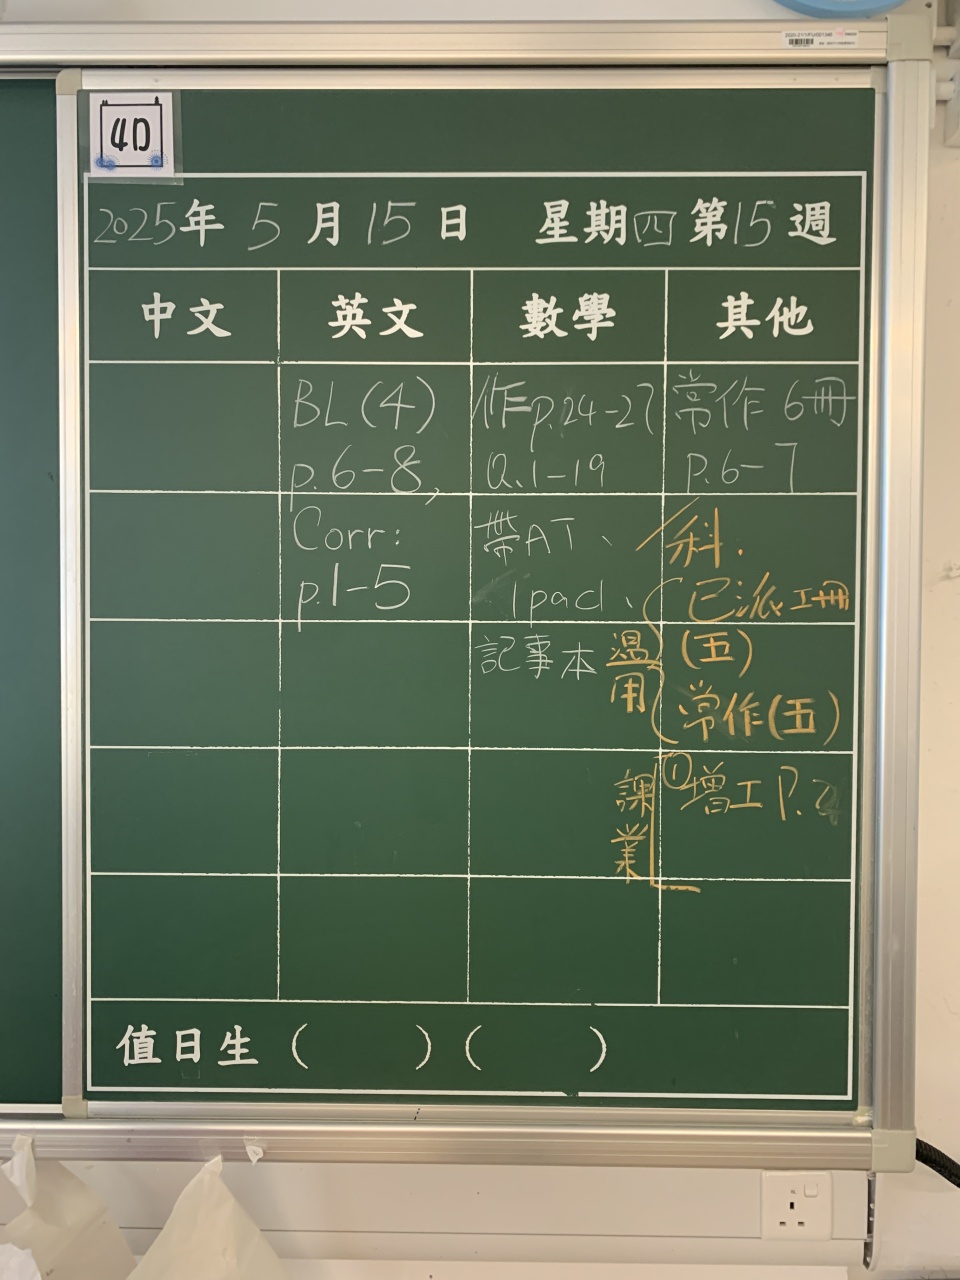 4D
2025年 5 月 15 日 星期四 第15 週
中文 英文 數學 其他
BL(4)
p.6-8,
Corr:
p.1-5
作p.24-27
Q.1-19
帶AT、
Ipad、
記事本
常作 6冊
P.6-7
科.
溫
用
已派工冊
(五)
常作(五)
課
業
①增工 P.24
值日生 ( ) ( )